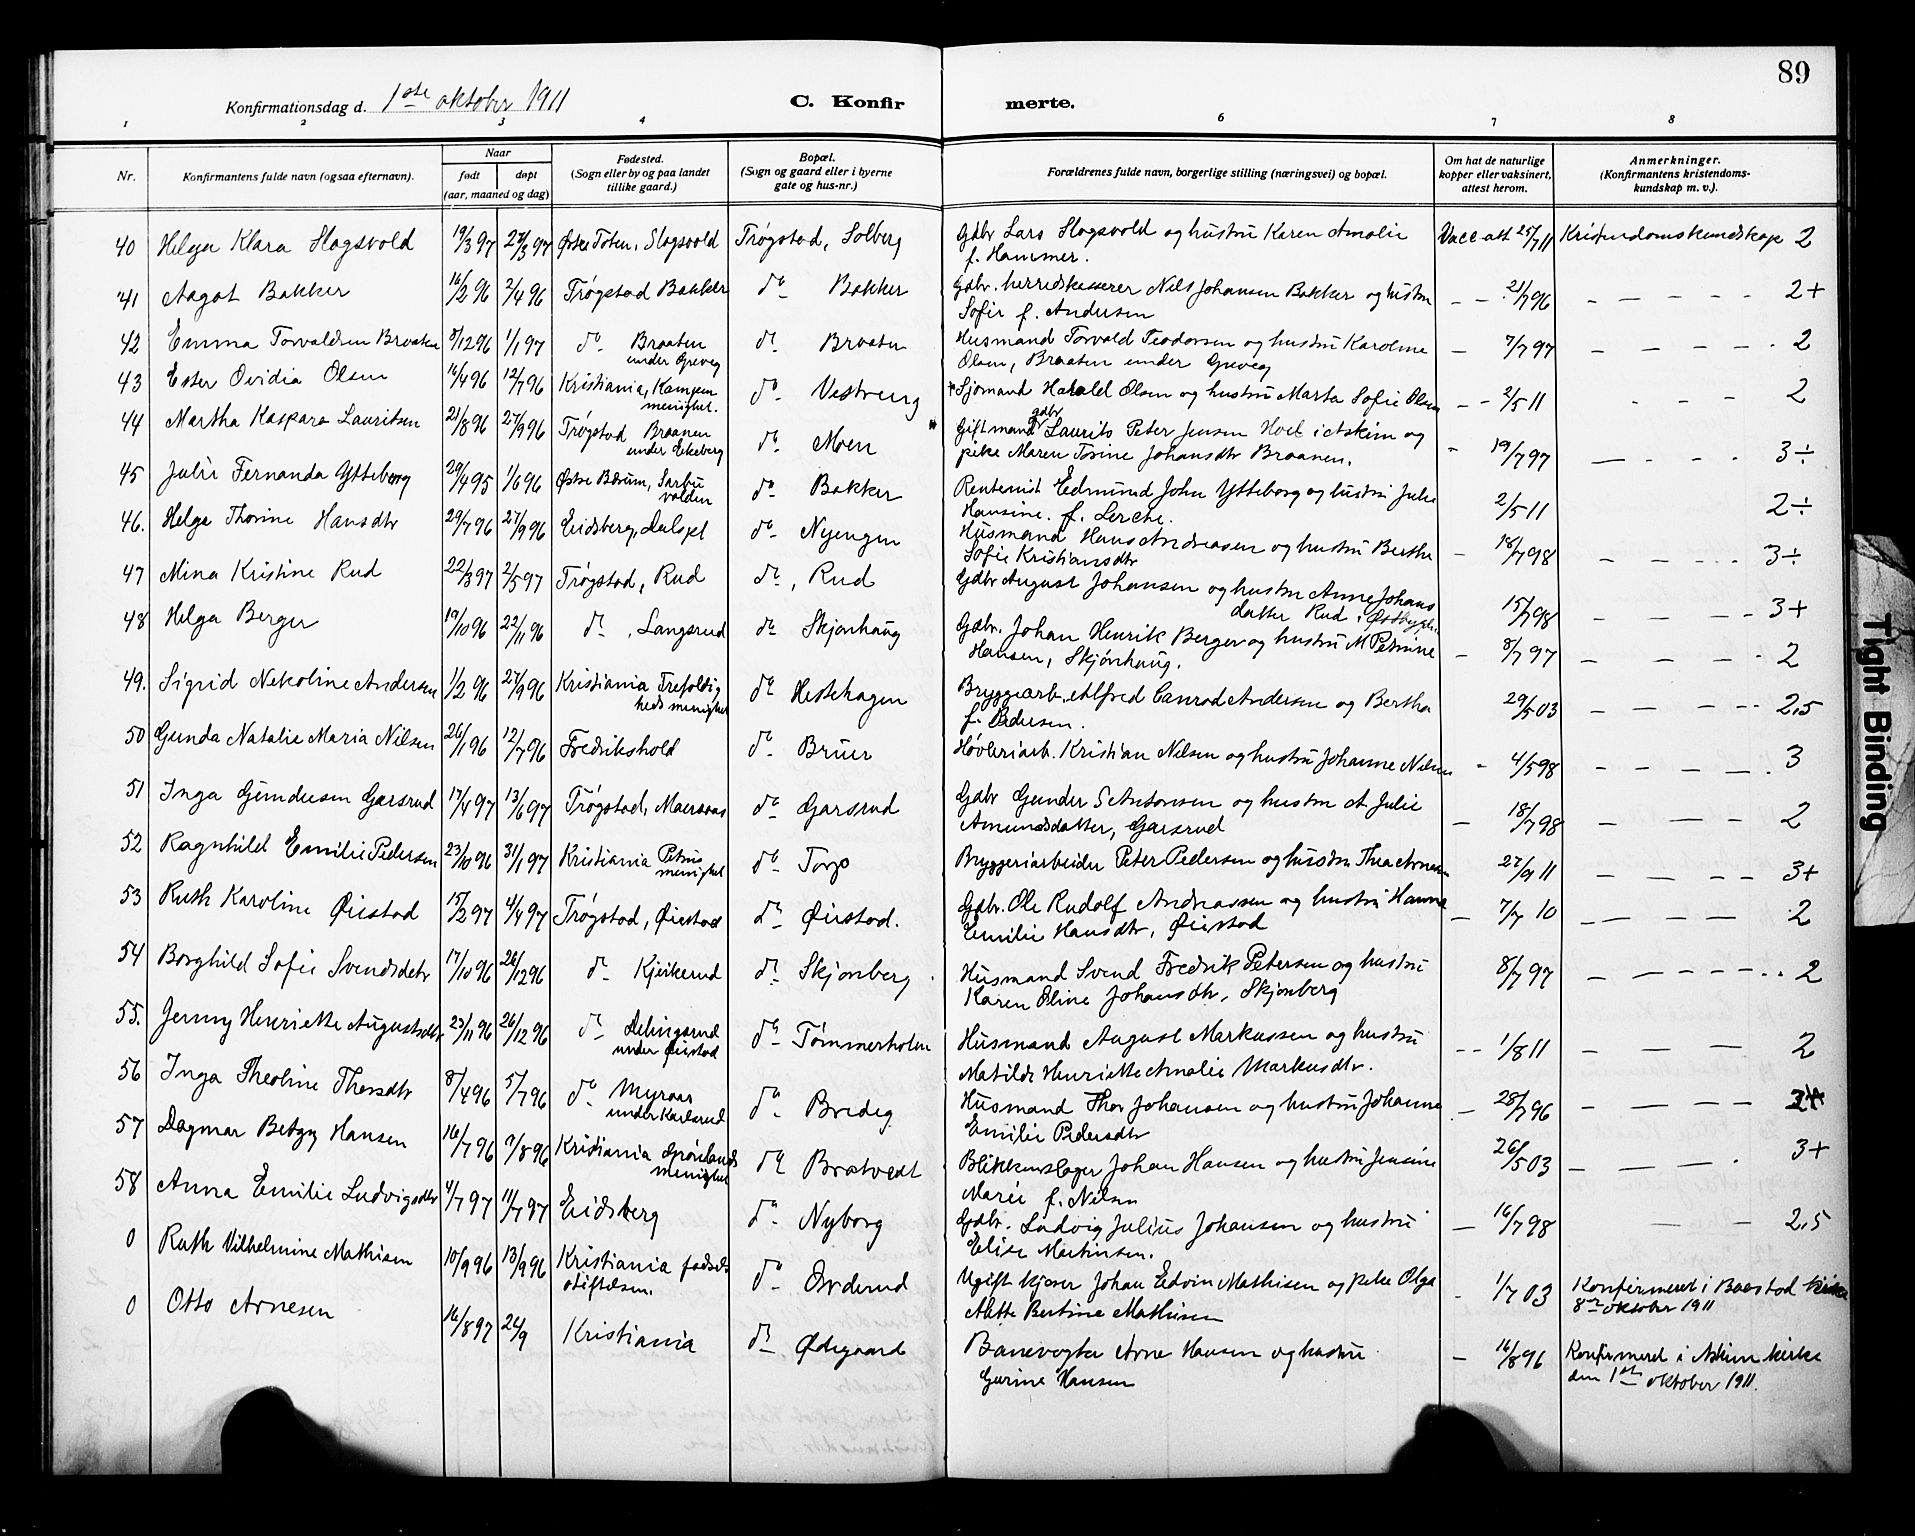 89
Konfirmationsdag d. 1ste oktober 1911 C. Konfirmerte.
1 2 3 4 6 7 8
Nr. Konfirmantens fulde navn (ogsaa efternavn). Naar født døpt (aar, maaned og dag) Fødested. (Sogn eller by og paa landet tillike gaard.) Bopæl. (Sogn og gaard eller i byerne gate og hus-nr.) Forældrenes fulde navn, borgerlige stilling (næringsvei) og bopæl. Om hat de naturlige kopper eller vaksinert, attest herom. Anmerkninger. (Konfirmantens kristendoms-kundskap m. v.).
40 Helga Klara Slogsvold 19/3 97 28/3 97 Østre Toten, Slogsvold Trøgstad, Solberg Gdbr Lars Slogsvold og hustru Karen Amalie
f. Hammer. Vacc. att 25/7 11 Kristendomskundskap 2
41 Aagot Bakker 16/2 96 2/4 96 Trøgstad Bakker do Bakker Gdbr. herredskasserer Nils Johansen Bakker og hustru
Sofie f. Andersen — — 21/7 96 — — — — 2+
42 Emma Torvaldsen Braaten 8/12 96 1/1 97 do Braaten
under Greveg do Braaten Husmand Torvald Teodorsen og hustru Karoline
Olsen, Braaten under Greveg — 7/7 97 — — — — 2
43 Ester Ovidia Olsen 14/4 96 12/7 96 Kristiania, Kampen
menighet. do Vestreng Sjømand Harald Olsen og hustru Marta Sofie Olsen — - 2/5 11 - - - 2
44 Martha Kaspara Lauritsen 21/8 96 27/9 96 Trøgstad Braanen
under Eikeberg do Moen Gift mand gdbr Laurits Peter Jensen Hoel i Askim og
pike Maren Torine Johansdtr Braanen. - 19/7 97 — - - - 3÷
45 Julie Fernanda Ytteborg 29/4 95 1/6 96 Østre Bærum, Sarbu
volden do Bakker Rentenist Edmund John Ytteborg og hustru Julie
Hansine. f. Lerche. 2/5 11 2÷
46. Helga Thorine Hansdtr 29/7 96 27/9 96 Eidsberg, Dalsjet do Nyengen Husmand Hans Andreasen og hustru Berthe
Sofie Kristiansdtr — 18/7 98 - — - - - 3÷
47 Mina Kristine Rud 22/3 97 2/5 97 Trøgstad, Rud do, Rud Gdbr August Johansen og hustru Anne Johans
datter Rud i 15/7 98 — — — - 3+
48 Helga Berger 19/10 96 22/11 96 do, Langsrud do Skjønhaug Gdbr. Johan Henrik Berger og hustru M Petrine
Hansen, Skjønhaug. — 8/7 97 — — — - 2
49. Sigrid Nekoline Andersen 1/2 96 27/9 96 Kristiania Trefoldig
heds menighet do Hestehagen Bryggearb. Alfred Conrad Andersen og Bertha
f. Pedersen. 29/5 03 — — — - - 2,5
50 Gunda Natalie Maria Nilsen 26/1 96 12/7 96 Fredrikshald do Bruer Høvleriarb. Kristian Nilsen og hustru Johanne Nilsen - 4/5 98 - — — — . 3
51 Inga Gundersen Garsrud 17/4 97 13/6 97 Trøgstad, do Garsrud Gdbr Gunder S Antonsen og hustru A. Julie
Amundsdatter, Garsrud — 18/7 98 — — — 2
52 Ragnhild Emilie Pedersen 23/10 96 31/1 97 Kristiania Petrus
menighet do Torp Bryggeriarbeider Peter Pedersen og hustru Thea Arnesen 27/9 11 — — — - 3+
53 Ruth Karoline Øiestad 15/2 97 4/4 97 Trøgstad, Øiestad do Øiestad. Gdbr. Ole Rudolf Andreassen og hustru Hanna
Emilie Hansdtr, Øiestad — 7/7 10 - — — — 2
54 Borghild Sofie Svendsdatr 17/10 96 26/12 96 do Kjeikerud do Skjønberg Husmand Svend Fredrik Petersen og hustru
Karen Eline Johansdtr, Skjønberg 8/7 97 — — — — - - 2
55. Jenny Henriette Augustsdtr 23/11 96 26/12 96 do Delingsrud
under Øiestad do Tømmerholm Husmand August Markussen og hustru
Matilde Henriette Amalie Markusdtr. - - 1/8 11 — — — 2
56 Inga Theoline Thorsdtr 8/4 96 5/7 96 do Myraas
under Karlsrud do Bredeg Husmand Thor Johansen og hustru Johanne
Emilie Pedersdtr — 28/7 96 — — — —
57 Dagmar Betzy Hansen 16/7 96 9/8 96 Kristiania Grønlands
menighet do Bratvedt Blikkenslager Johan Hansen og hustru Jensine
Marie f. Nilsen 26/5 03 — — — . 3+
58 Anna Emilie Ludvigsdtr 4/7 97 11/7 97 Eidsberg do Nyborg Gdbr. Ludvig Julius Johansen og hustru
Elise Martinsen. — 16/7 98 — — 2,5
0 Ruth Vilhelmine Mathisen 10/9 96 13/9 96 Kristiania fødsels
stiftelsen. do Orderud Ugift kjører Johan Edvin Mathisen og pike Olga
Alette Bertine Mathisen - 1/7 03 Konfirmeret i Baastad kirke
8de oktober 1911
0 Otto Arnesen 16/8 97 24/9 Kristiania do Ødegaard Banevogter Arne Hansen og hustru
Gurine Hansen — 16/8 96 Konfirmeret i Askim kirke
den 1ste oktober 1911.
Tight Binding